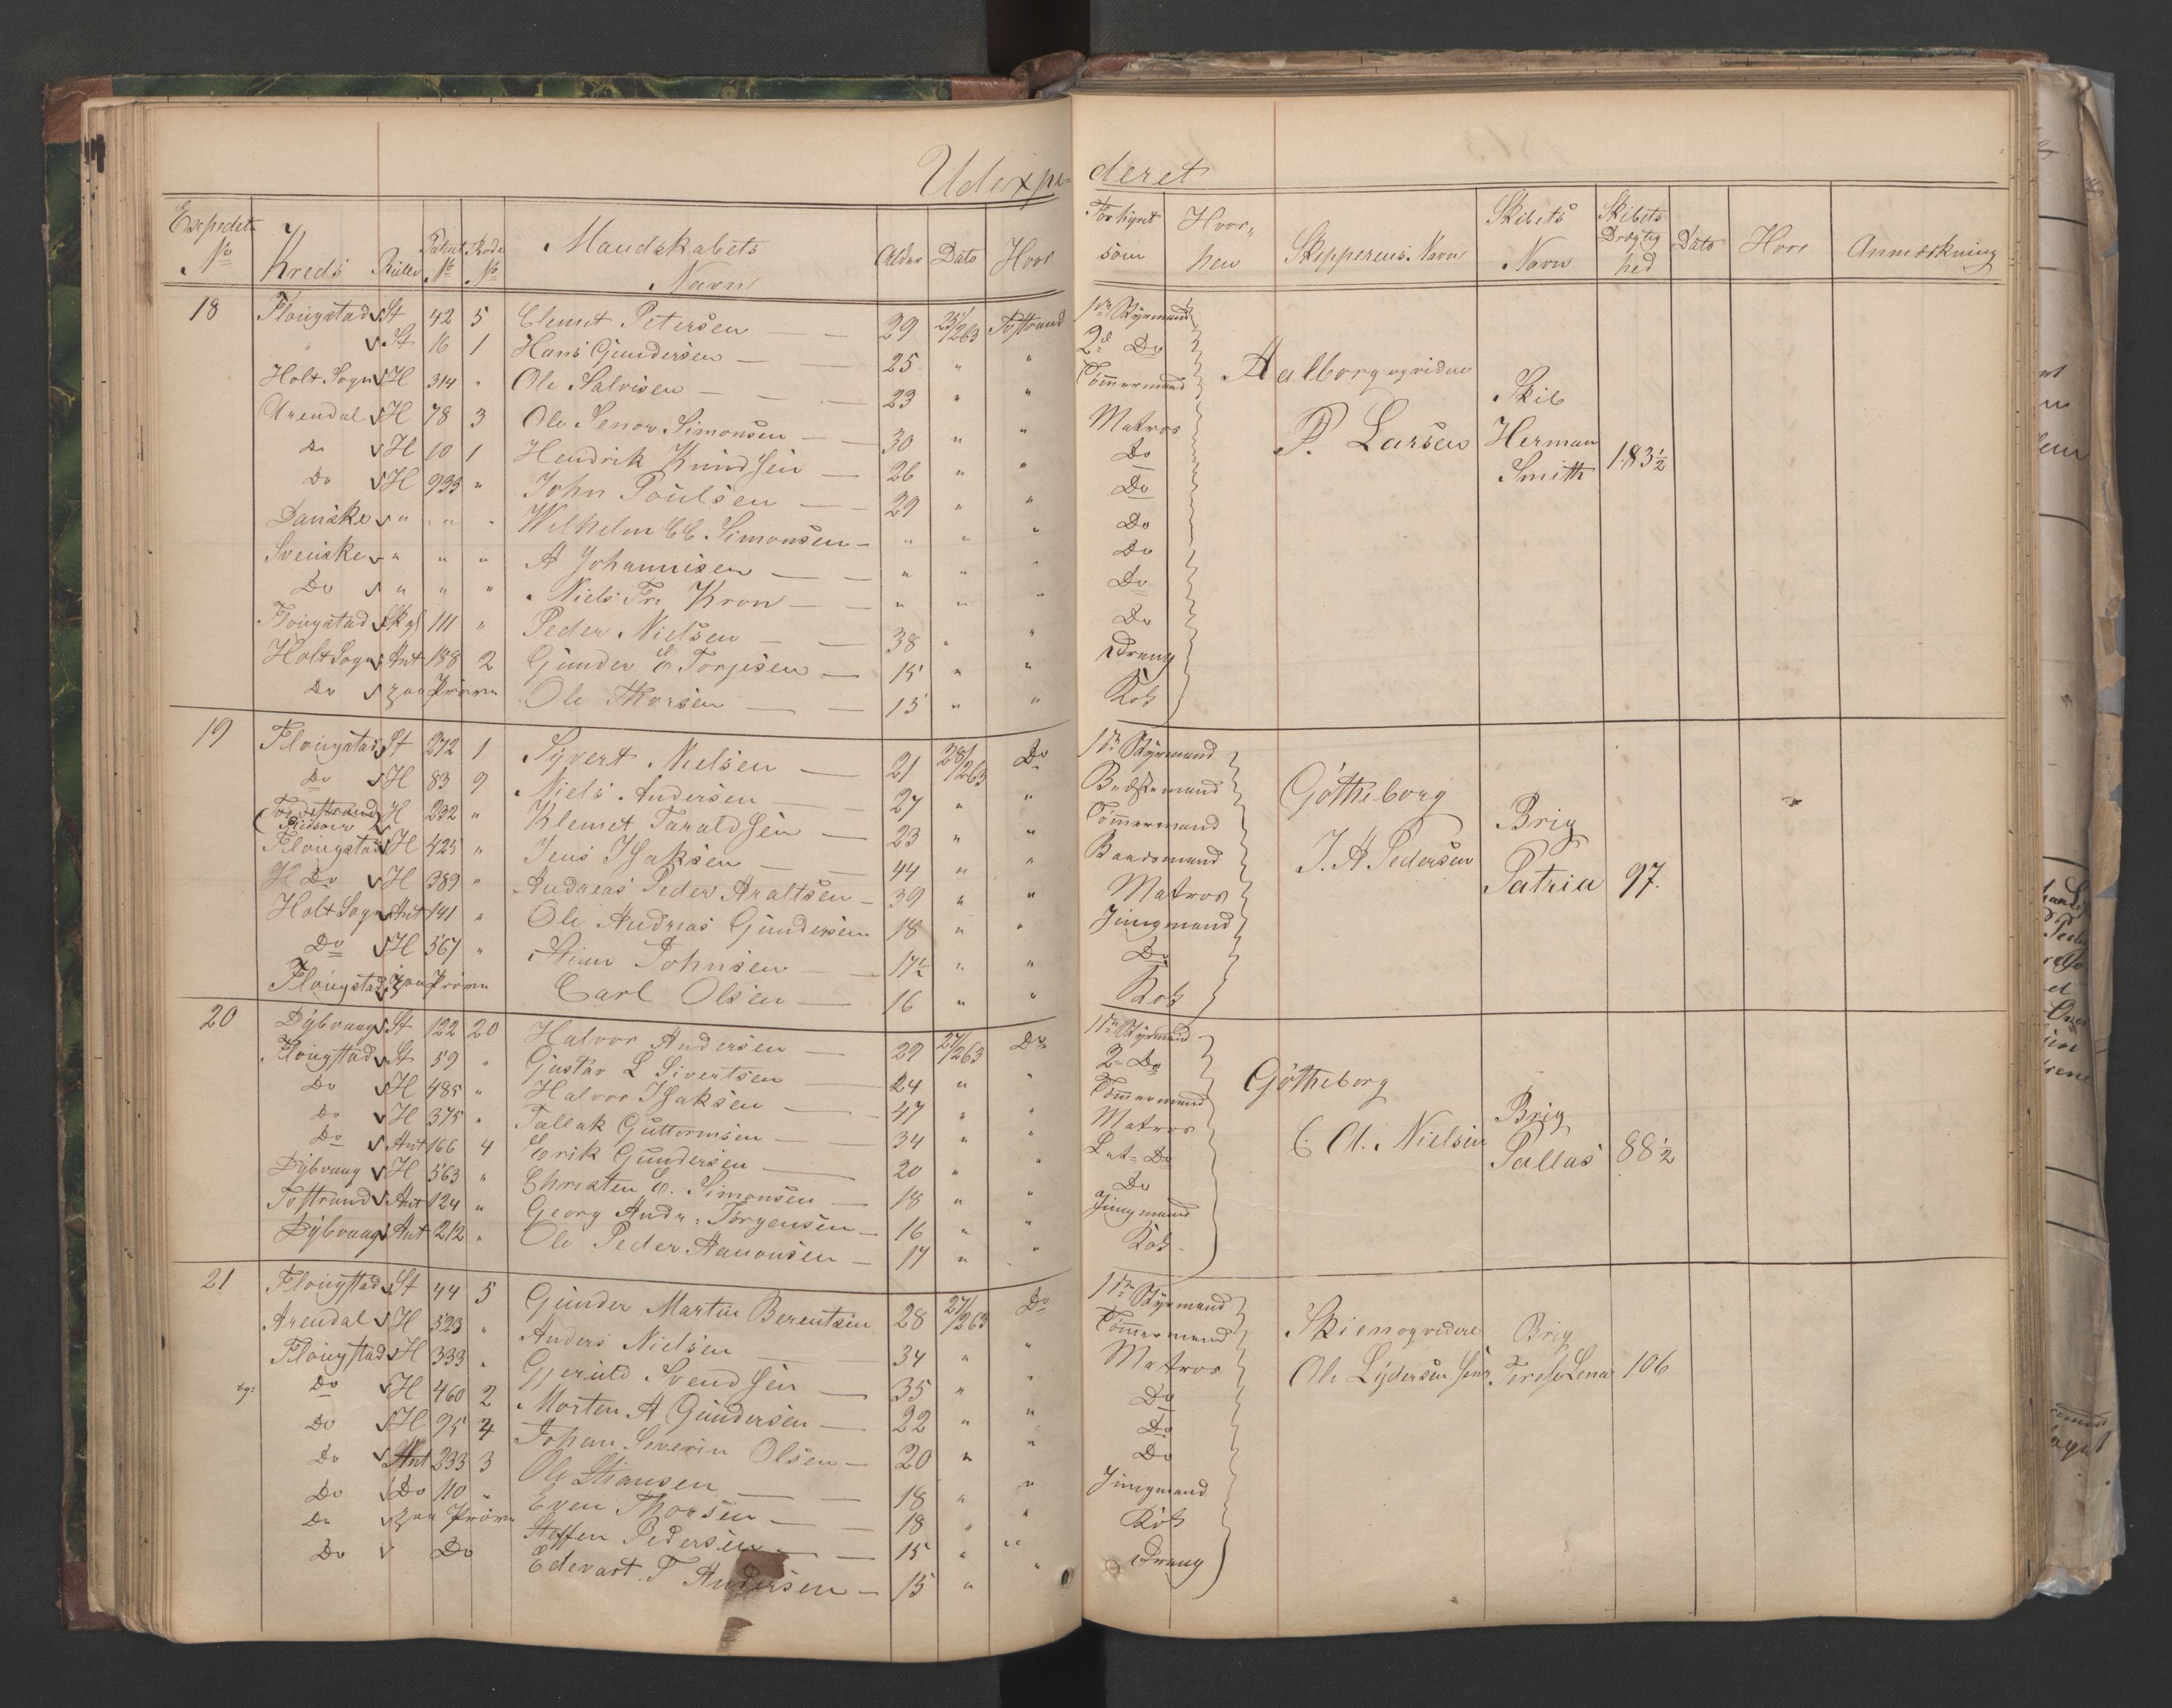 Udexpe-
deret
Expedets No Kreds Rülle Patent No Rode No Mandskabets Navn Alder Dato Hvor
Forhyret som Hvor,, hen Skipperens Navn Skibets Navn Skibets Drægtighed Dato Hvor Anmærkning
18 Flougstad St 42 5 Clemet Petersen 29 25/2 63 1ste Styrmand
St 16 1 Hans Gundersen 25 " " 2d Do
Holt Sogn H 314 " Ole Salvisen 23 " " Tömmermand Aalborg og videre
Arendal H 78 3 Ole Senov Simonsen 30 " " Matros Skib
Do H 10 1 Hendrik Knudsen 26 " " Do P. Larsen Herman
Do H 935 " John Poulsen 29 " " Do Smith 183½
Danske " " " Wilhelm Simonsen " " " Do
Svenske " " " A Johannisen " " " Do
Do " " " Niels Fr. Kron " " " Do
Flougstad 111 " Peder Nielsen 38 " " Do
Holt Sogn Ant 188 2 Gunder E Torjesen 15 " " Dreng
Do Prörn Ole Thorsen 15 " " Kok
19 Flougstad St 272 1 Syvert Nielsen 21 28/2 63 Do 1ste Styrmand
Do H 83 9 Niels Andersen 27 " " Bedstemand Götheborg
H 232 " Klemet Taraldsen 23 " " Tömmermand Brig
Flougstad H 425 " Jens Isaksen 44 " " Baadsmand J. A. Pedersen
Do H 389 " Andreas Peder Araltsen 39 " " Matros Patria 97.
Holt Sogn Ant 141 " Ole Andreas Gundersen 18 " " Jungmand
Do H 567 " Stian Johnsen 17½ " " Do
Flougstad Prörn Carl Olsen 16 " " Kok
20 Dybvaag St 122 20 Halvor Andersen 29 27/2 63 Do 1ste Styrmand
Flougstad St 59 " Gustav L Sivertsen 24 " " 2 Do
Do H 485 " Halvor Isaksen 47 " " Tömmermand Götheborg
Do H 375 " Tallak Guttormsen 34 " " Matros Brig
Do Ant 166 4 Erik Gundersen 20 " " Let- Do C. A. Nielsen Pallas 88½
Dybvaag H 563 " Christen E. Simonsen 18 " " Do
Tostrand Ant 124 " Georg Andr: Jørgensen 16 " " Jungmand
Dybvaag Ant 212 " Ole Peder Aanonsen 17 " " Kok
21 Flougstad St 44 5 Gunder Martin Berentsen 28 27/2 63 Do 1ste Styrmand
Arendal H 523 " Anders Nielsen 34 " " Tömmermand Skien og videre Brig
Flougstad H 333 " Gjeruld Svendsen 35 " " Matros Ole Lydersen 106
Do H 460 2 Morten A Gundersen 22 " " Do
Do H 95 4 Johan Severin Olsen 20 " " Do
Do Ant 233 3 Ole Stiansen 18 " " Do
Do Do 110 " Even Thorsen 18 " " Jungmand
Do Prörn Steffen Pedersen 15 " " Kok
Do Do Edevart T Andersen 15 " " Dreng